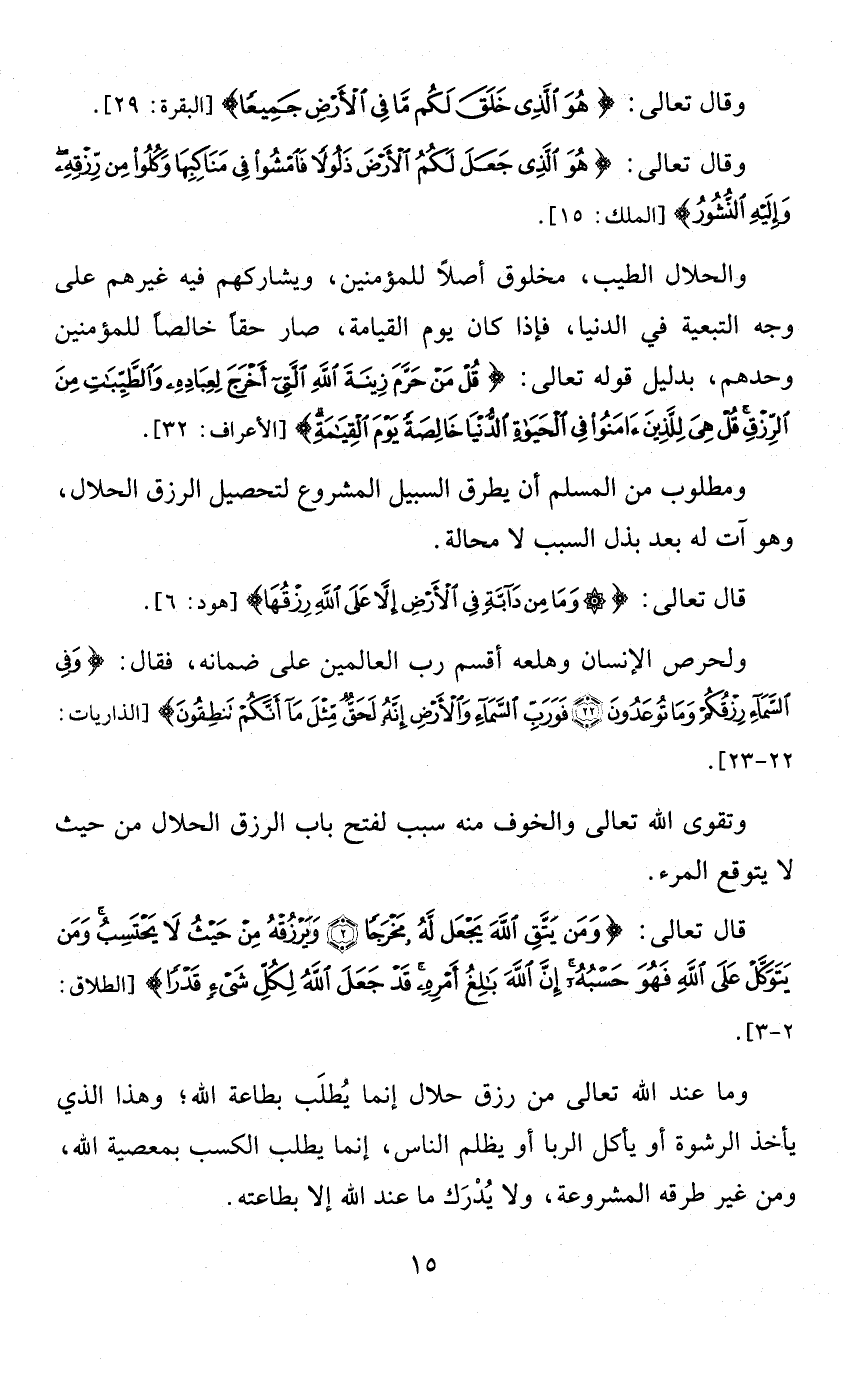 وقال تعالى: ﴿ هُوَ ٱلَّذِى خَلَقَ لَكُم مَّا فِى ٱلْأَرْضِ جَمِيعًا﴾ [البقرة: ٢٩].
وقال تعالى: ﴿ هُوَ ٱلَّذِى جَعَلَ لَكُمُ ٱلْأَرْضَ ذَلُولًا فَٱمْشُوا۟ فِى مَنَاكِبِهَا وَكُلُوا۟ مِن رِّزْقِهِۦۖ
وَإِلَيْهِ ٱلنُّشُورُ﴾ [الملك: ١٥].
والحلال الطيب، مخلوق أصلاً للمؤمنين، ويشاركهم فيه غيرهم على
وجه التبعية في الدنيا، فإذا كان يوم القيامة، صار حقاً خالصاً للمؤمنين
وحدهم، بدليل قوله تعالى: ﴿ قُلْ مَنْ حَرَّمَ زِينَةَ ٱللَّهِ ٱلَّتِىٓ أَخْرَجَ لِعِبَادِهِۦ وَٱلطَّيِّبَٰتِ مِنَ
ٱلرِّزْقِۚ قُلْ هِىَ لِلَّذِينَ ءَامَنُوا۟ فِى ٱلْحَيَوٰةِ ٱلدُّنْيَا خَالِصَةً يَوْمَ ٱلْقِيَٰمَةِۗ﴾ [الأعراف: ٣٢].
ومطلوب من المسلم أن يطرق السبيل المشروع لتحصيل الرزق الحلال،
وهو آت له بعد بذل السبب لا محالة.
قال تعالى: ﴿ ۞ وَمَا مِن دَآبَّةٍ فِى ٱلْأَرْضِ إِلَّا عَلَى ٱللَّهِ رِزْقُهَا﴾ [هود: ٦].
ولحرص الإنسان وهلعه أقسم رب العالمين على ضمانه، فقال: ﴿ وَفِى
ٱلسَّمَآءِ رِزْقُكُمْ وَمَا تُوعَدُونَ ٢٢ فَوَرَبِّ ٱلسَّمَآءِ وَٱلْأَرْضِ إِنَّهُۥ لَحَقٌّ مِّثْلَ مَآ أَنَّكُمْ تَنطِقُونَ﴾ [الذاريات:
٢٢-٢٣].
وتقوى الله تعالى والخوف منه سبب لفتح باب الرزق الحلال من حيث
لا يتوقع المرء.
قال تعالى: ﴿ وَمَن يَتَّقِ ٱللَّهَ يَجْعَل لَّهُۥ مَخْرَجًا ٢ وَيَرْزُقْهُ مِنْ حَيْثُ لَا يَحْتَسِبُۚ وَمَن
يَتَوَكَّلْ عَلَى ٱللَّهِ فَهُوَ حَسْبُهُۥٓۚ إِنَّ ٱللَّهَ بَٰلِغُ أَمْرِهِۦۚ قَدْ جَعَلَ ٱللَّهُ لِكُلِّ شَىْءٍ قَدْرًا﴾ [الطلاق:
٢-٣].
وما عند الله تعالى من رزق حلال إنما يُطلَب بطاعة الله؛ وهذا الذي
يأخذ الرشوة أو يأكل الربا أو يظلم الناس، إنما يطلب الكسب بمعصية الله،
ومن غير طرقه المشروعة، ولا يُدْرَك ما عند الله إلا بطاعته.
١٥